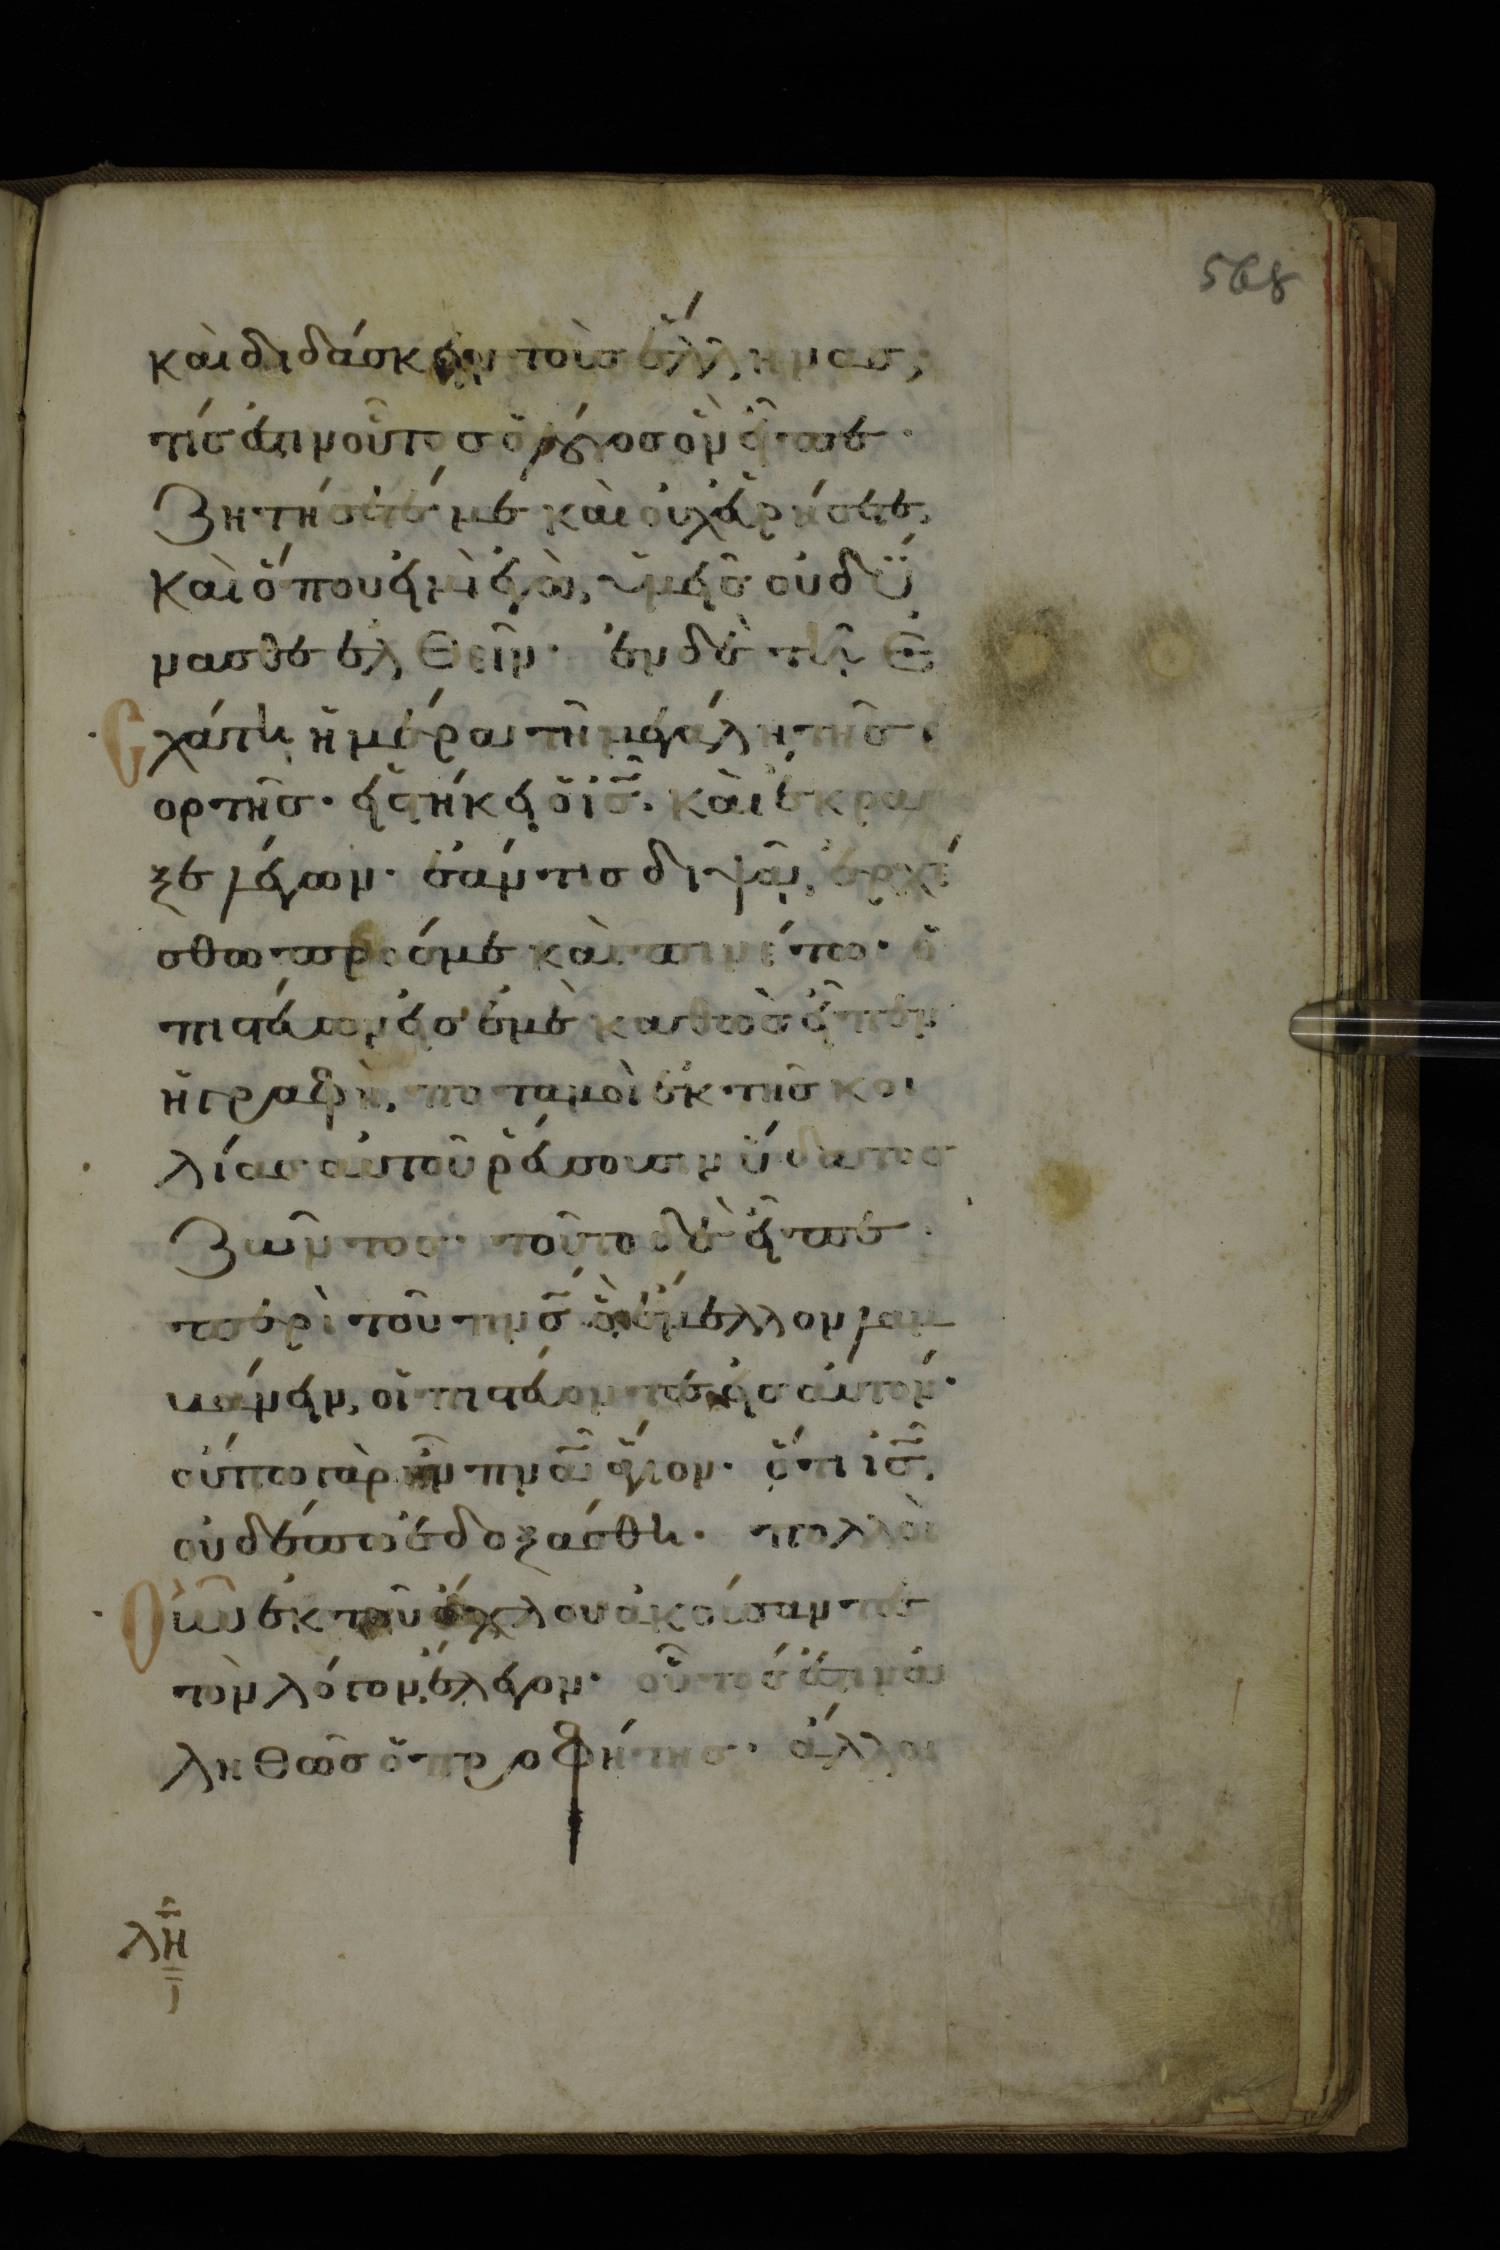 568
καὶ διδάσκειν τοὺς ἕλληνας;
τίς ἐστιν οὗτος ὁ λόγος ὃν εἶπε·
Ζητήσετέ με καὶ οὐχ εὑρήσετε,
Καὶ ὅπου εἰμὶ ἐγὼ, ὑμεῖς οὐ δύ
νασθε ἐλθεῖν· ἐν δὲ τῆ ἐ
χάτη ἡμέρα τῆ μεγάλη τῆς ἑ
ορτῆς· εἱστήκει ὁ ις̅. καὶ ἔκρα
ξε λέγων· ἐάν τις διψᾶ, ἐρχέ
σθω πρός με καὶ πινέτω· ὁ
πιστεύων εἰς ἐμὲ καθὼς εἶπεν
ἡ γραφὴ, ποταμοὶ ἐκ τῆς κοι
λίας αὐτοῦ ῥεύσουσιν ὕδατος
Ζῶντος· τοῦτο δὲ εἶπε·
περὶ τοῦ πνς̅ οὗ ἔμελλον λαμ
βάνειν, οἱ πιστεύοντες εἰς αὐτόν·
οὔπω γὰρ ἦν πνα̅ ἅγιον· ὅτι ις̅,
οὐδέπω ἐδοξάσθη· πολλοὶ
Οὖν ἐκ τοῦ ὄχλου ἀκούσαντες
τὸν λόγον, ἔλεγον· οὗτός ἐστιν ἀ
ληθῶς ὁ προφήτης· ἄλλοι
λη